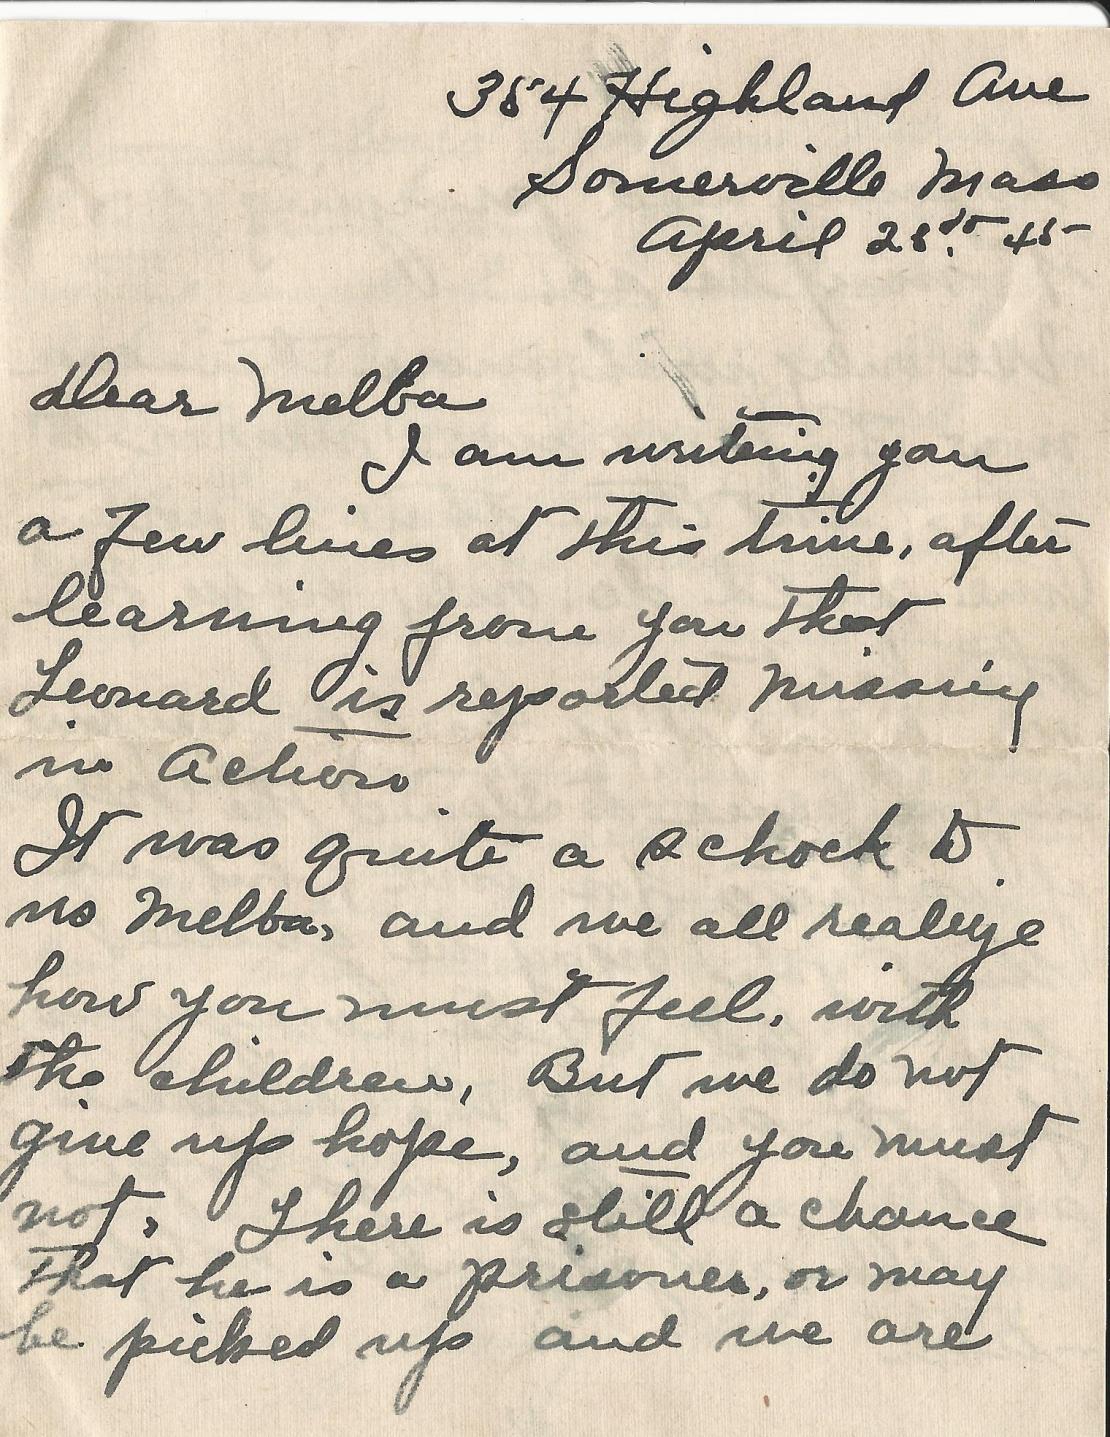 354 Highland Ave
Somerville Mass
April 25th 45
Dear Melba
I am writing you
a few lines at this time, after
learning from you that
Leonard is reported missing
in Action
It was quite a schock to
us Melba, and we all realize
how you must feel, with
the children, But we do not
give up hope, and you must
not, There is still a chance
that he is a prisoner, or may
be picked up and we are